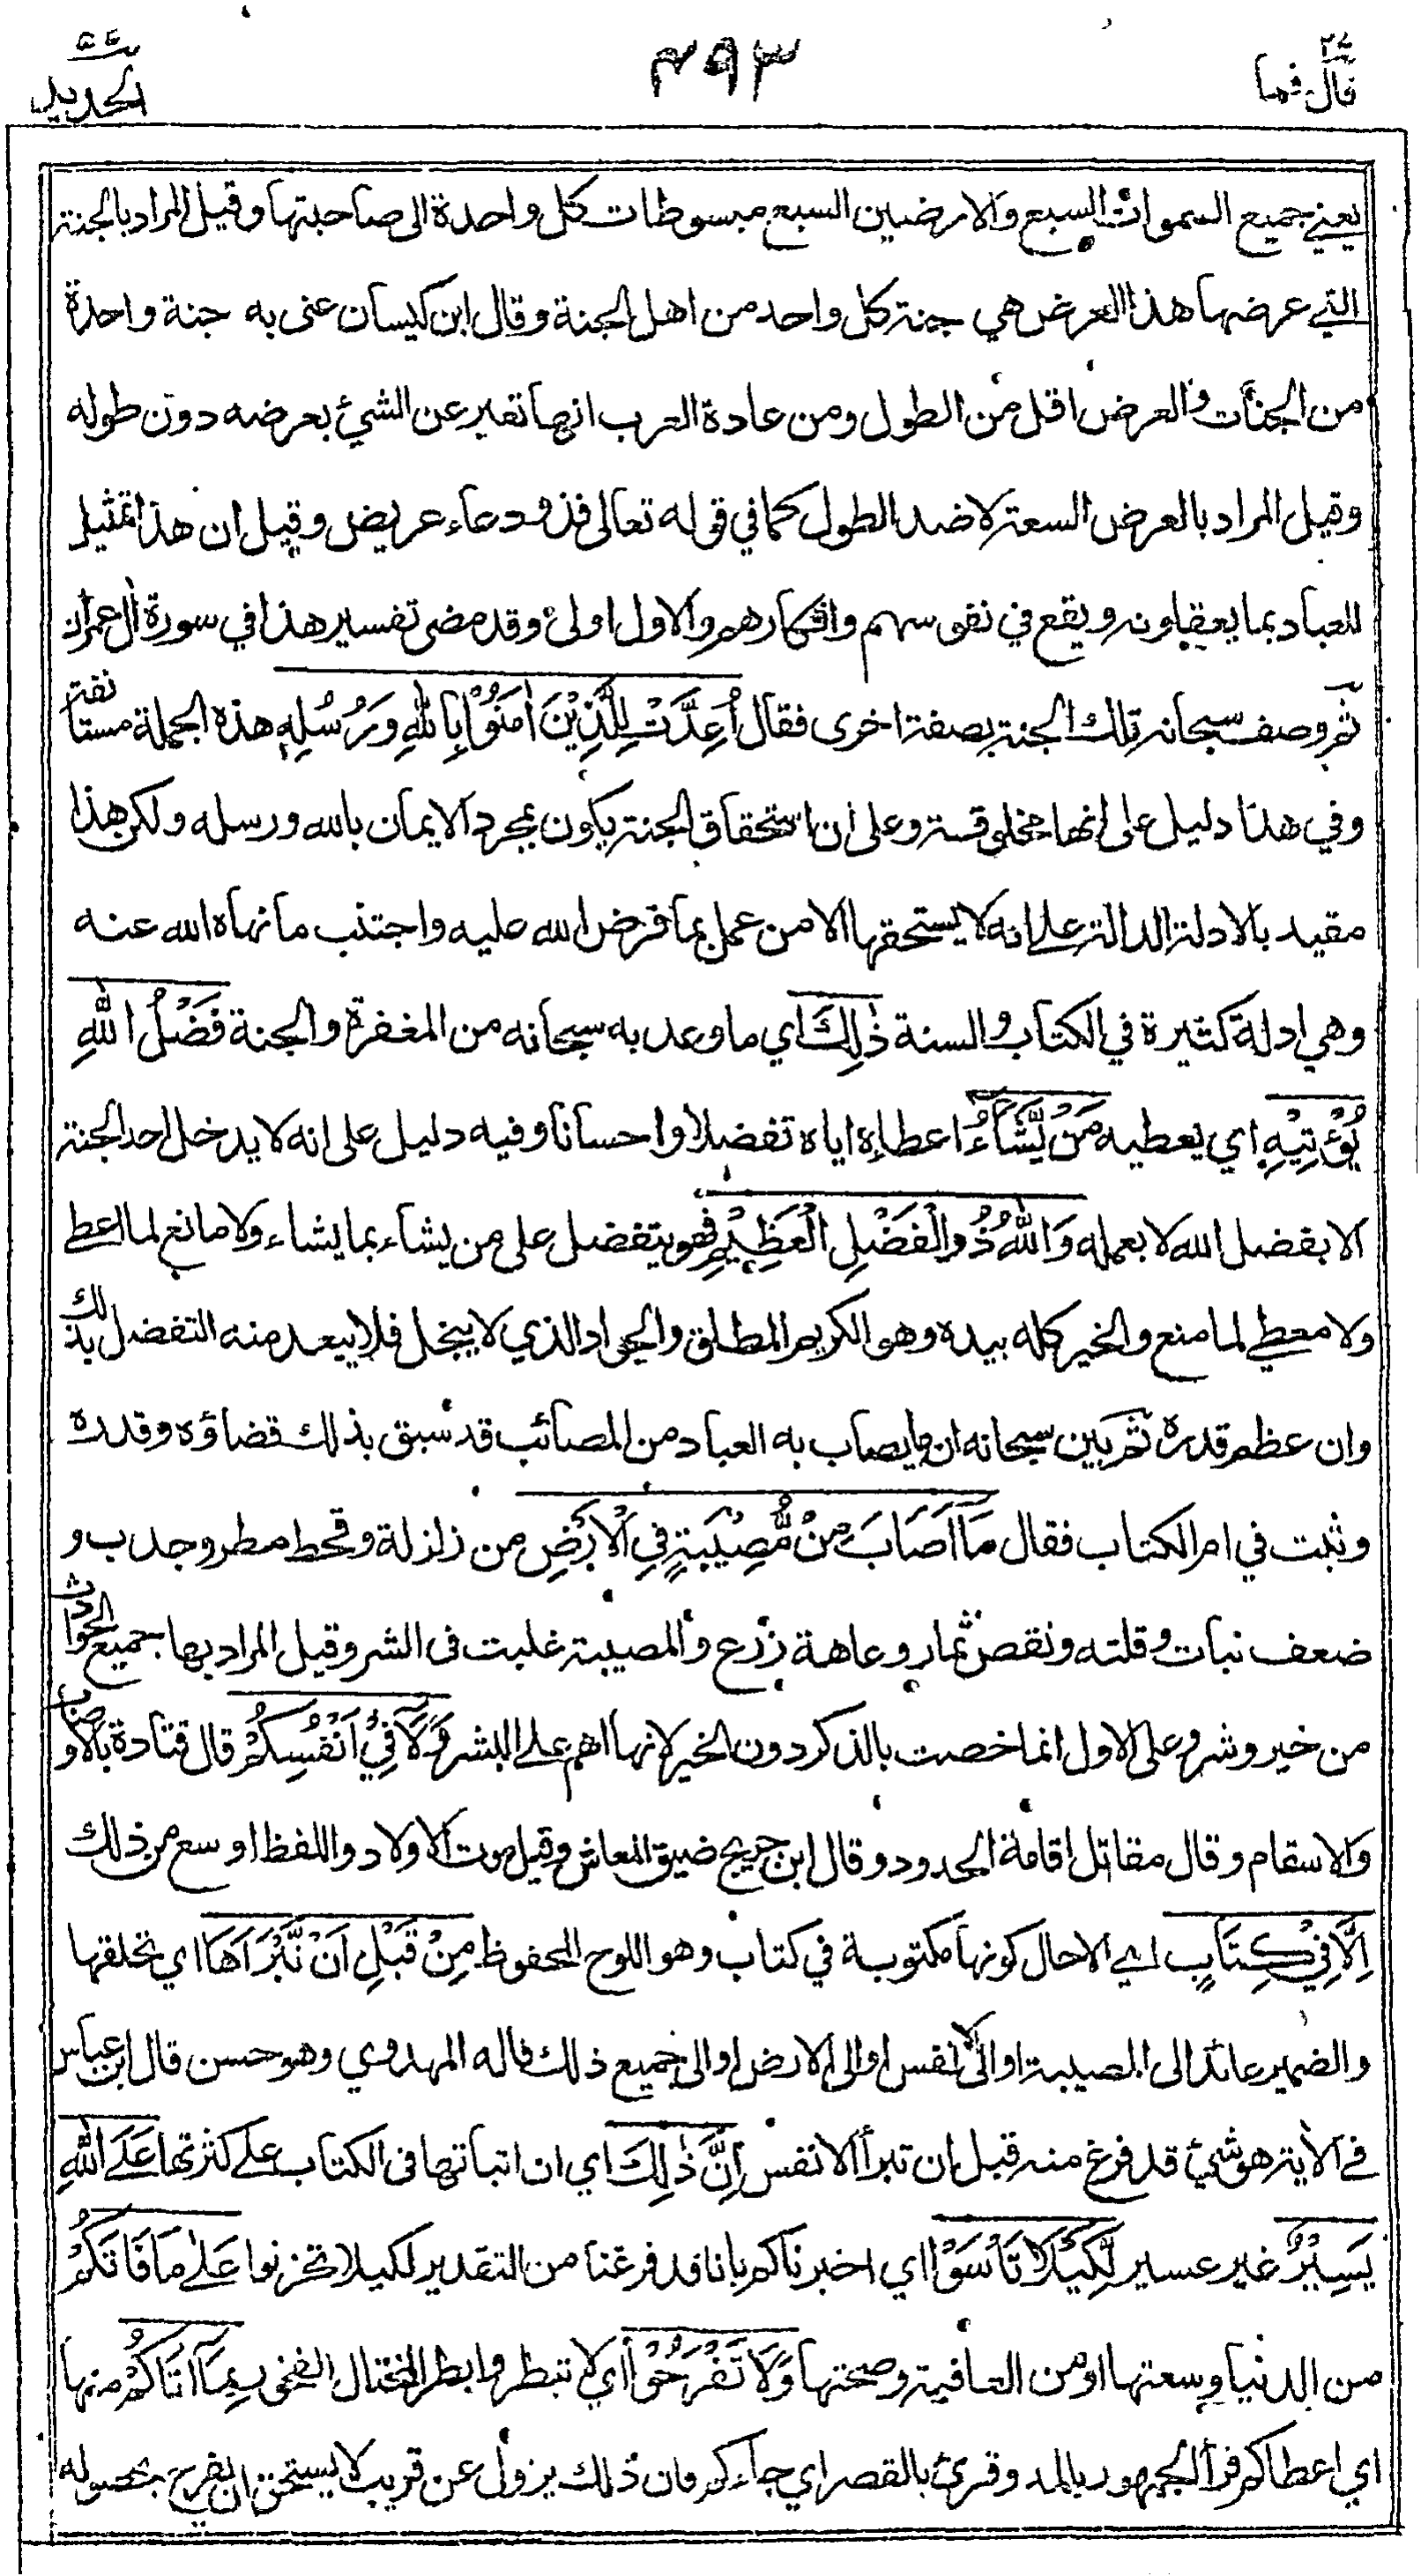 قال فما ٢٧
٣٩٣
الحديد ٥٧
يعني جميع السموات السبع والارضين السبع مبسوطات كل واحدة الى صاحبتها وقيل المراد بالجنة
التي عرضها هذا العرض هي جنة كل واحد من اهل الجنة وقال ابن كيسان عنى به جنة واحدة
من الجنات والعرض اقل من الطول ومن عادة العرب انها تعبر عن الشيئ بعرضه دون طوله
وقيل المراد بالعرض السعة لا ضد الطول كما في قوله تعالى فذو دعاء عريض وقيل ان هذا تمثيل
للعباد بما يعقلونه ويقع في نفوسهم وافكارهم والاول اولى وقد مضى تفسير هذا في سورة ال عمران
ثم وصف سبحانه تلك الجنة بصفة اخرى فقال أُعِدَّتْ لِلَّذِيْنَ اٰمَنُوْا بِاللّٰهِ وَرُسُلِهٖ هذه الجملة مستأنفة
وفي هذا دليل على انها مخلوقة وعلى ان استحقاق الجنة يكون بمجرد الايمان بالله ورسله ولكن هذا
مقيد بالادلة الدالة على انه لا يستحقها الا من عمل بما فرض الله عليه واجتنب ما نهاه الله عنه
وهي ادلة كثيرة في الكتاب والسنة ذٰلِكَ اي ما وعد به سبحانه من المغفرة والجنة فَضْلُ اللّٰهِ
يُؤْتِيْهِ اي يعطيه مَنْ يَّشَآءُ اعطاءه اياه تفضلا واحسانا وفيه دليل على انه لا يدخل احد الجنة
الا بفضل الله لا بعمله وَاللّٰهُ ذُو الْفَضْلِ الْعَظِيْمِ فهو يتفضل على من يشاء بما يشاء ولا مانع لما اعطى
ولا معطي لما منع والخير كله بيده وهو الكريم المطلق والجواد الذي لا يبخل فلا يبعد منه التفضل بذلك
وان عظم قدره ثم بين سبحانه ان ما يصاب به العباد من المصائب قد سبق بذلك قضاؤه وقدره
وثبت في ام الكتاب فقال مَآ اَصَابَ مِنْ مُّصِيْبَةٍ فِي الْاَرْضِ من زلزلة وقحط مطر وجدب و
ضعف نبات وقلته ونقص ثمار وعاهة زرع والمصيبة غلبت فى الشر وقيل المراد بها جميع الحوادث
من خير وشر وعلى الاول انما خصت بالذكر دون الخير لانها اهم على البشر وَلَا فِيْ اَنْفُسِكُمْ قال قتادة بالاوصاب
والاسقام وقال مقاتل اقامة الحدود وقال ابن جريج ضيق المعاش وقيل موت الاولاد واللفظ اوسع من ذلك
اِلَّا فِيْ كِتَابٍ اي الا حال كونها مكتوبة في كتاب وهو اللوح المحفوظ مِنْ قَبْلِ اَنْ نَّبْرَاَهَا اي نخلقها
والضمير عائد الى المصيبة او الى الانفس او الى الارض او الى جميع ذلك قاله المهدوي وهو حسن قال ابن عباس
في الاية هو شيئ قد فرغ منه قبل ان تبرأ الانفس اِنَّ ذٰلِكَ اي ان اثباتها فى الكتاب على كثرتها عَلَى اللّٰهِ
يَسِيْرٌ غير عسير لِّكَيْلَا تَأْسَوْا اي اخبرناكم بانا قد فرغنا من التقدير لكيلا تحزنوا عَلٰى مَا فَاتَكُمْ
من الدنيا وسعتها او من العافية وصحتها وَلَا تَفْرَحُوْا اي لا تبطروا بطر المختال الفخور بِمَآ اٰتَاكُمْ منها
اي اعطاكم قرأ الجمهور بالمد وقرئ بالقصر اي جاءكم فان ذلك يزول عن قريب لا يستحق ان يفرح بحصوله